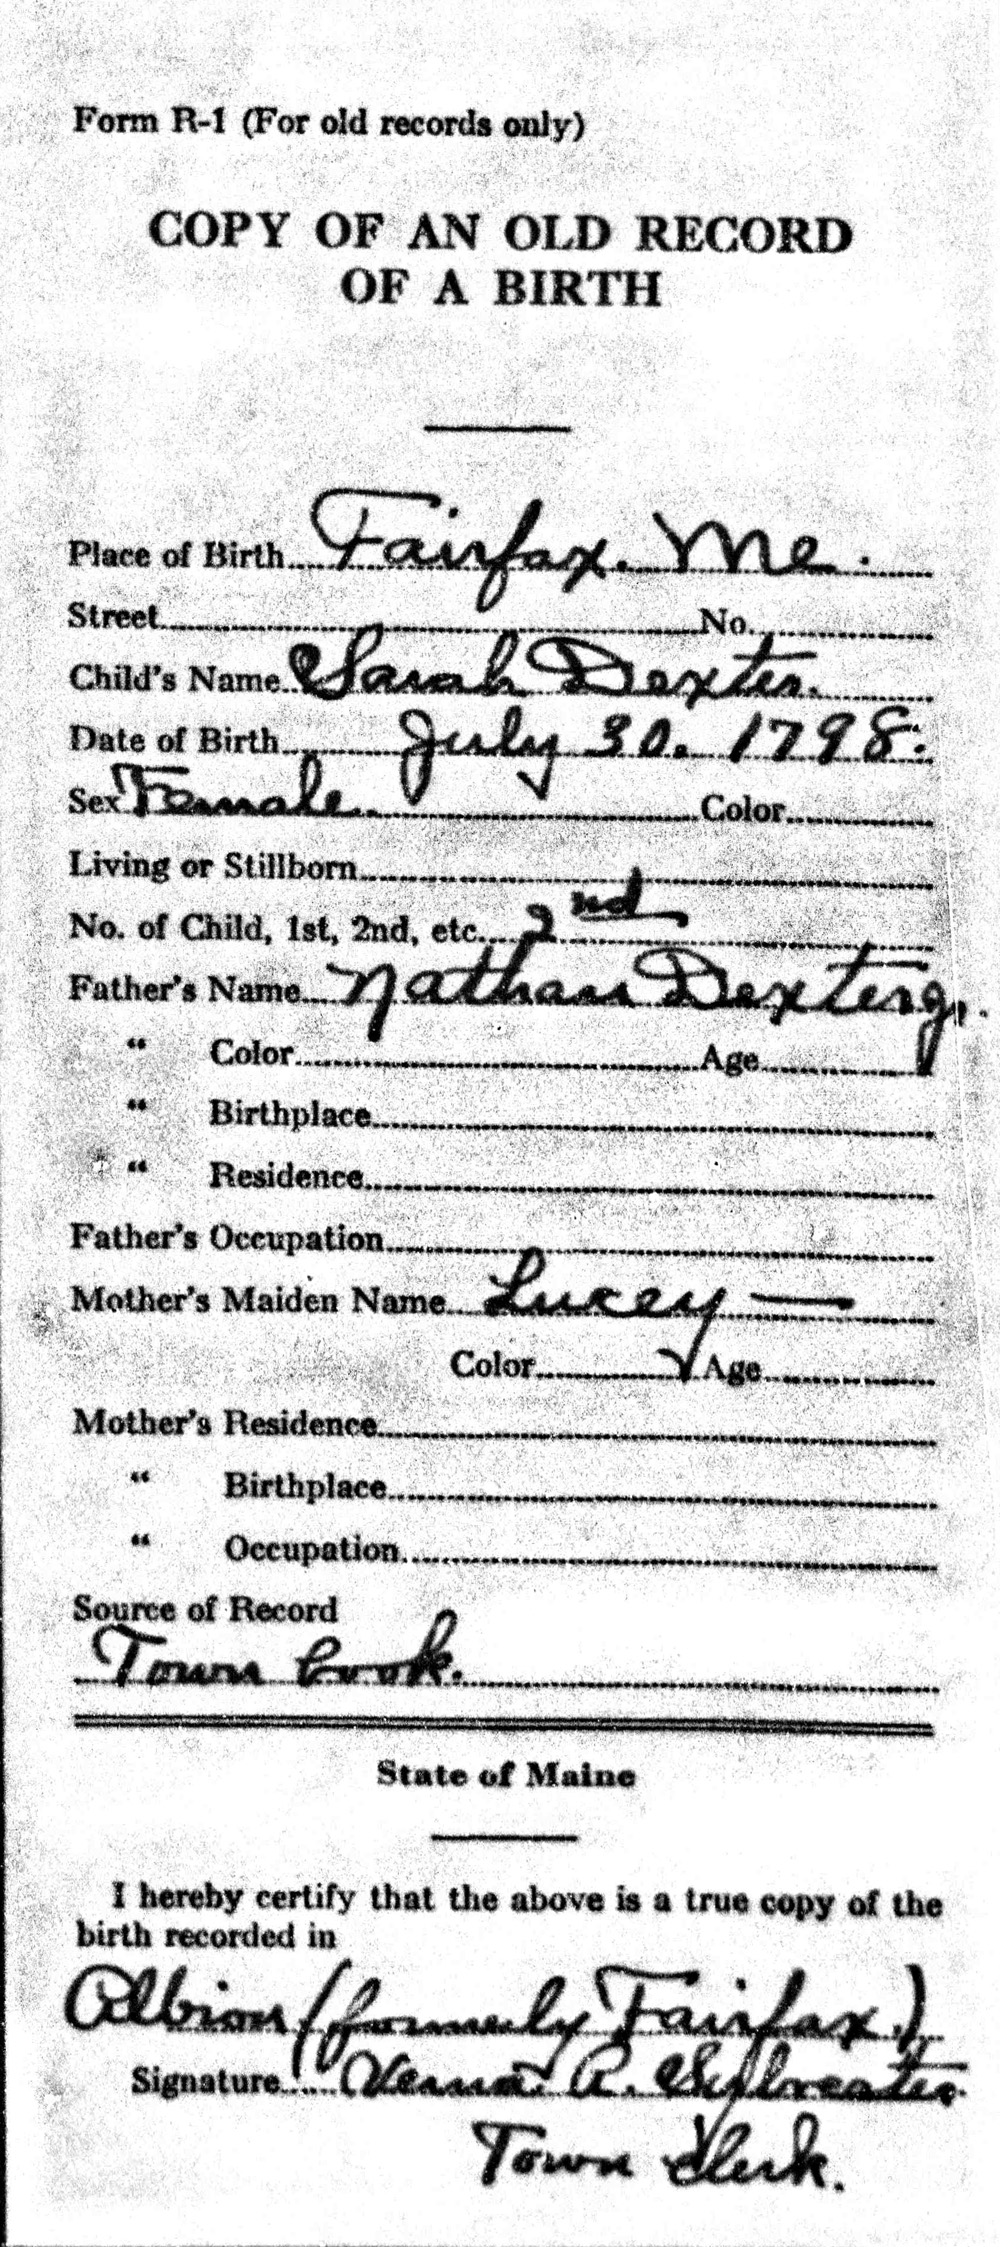 Form R-1 (For old records only)
COPY OF AN OLD RECORD
OF A BIRTH
Place of Birth Fairfax. Me.
Street No.
Child's Name Sarah Dexter.
Date of Birth July 30. 1798.
Sex Female. Color
Living or Stillborn
No. of Child, 1st, 2nd, etc. 2nd
Father's Name Nathan Dexter
" Color Age
" Birthplace
" Residence
Father's Occupation
Mother's Maiden Name Lucey —
Color Age
Mother's Residence
" Birthplace
" Occupation
Source of Record
Town book.
State of Maine
I hereby certify that the above is a true copy of the
birth recorded in
Albion (formerly Fairfax.)
Signature Verna R. Sylvester
Town Clerk.